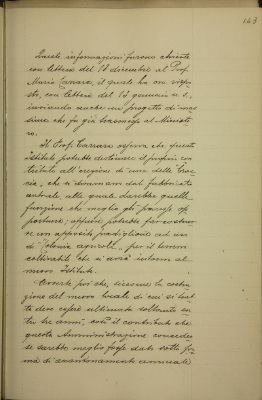 143
Queste informazioni furono chieste
con lettera del 21 dicembre al Prof.
Mario Carrara, il quale ha ora rispo-
sto, con lettera del 21 gennaio u. s.
inviando anche un progetto di mas-
sima che fu già trasmesso al Ministe-
ro.
Il Prof. Carrara osserva che questo
Istituto potrebbe destinare il proprio con-
tributo all'erezione di una delle brac-
cia, che si diramano dal fabbricato
centrale, alla quale darebbe quella
funzione che meglio gli paresse op-
portuna; oppure potrebbe far costrui-
re un apposito padiglione ad uso
di "Colonia agricola", per il terreno
coltivabile che si avrà intorno al
nuovo Istituto.
Avverte poi che, siccome la costru-
zione del nuovo locale di cui si trat-
ta deve essere ultimata soltanto en-
tro tre anni, così il contributo che
questa Amministrazione concedes-
se sarebbe meglio fosse dato sotto for-
ma di stanziamento annuale